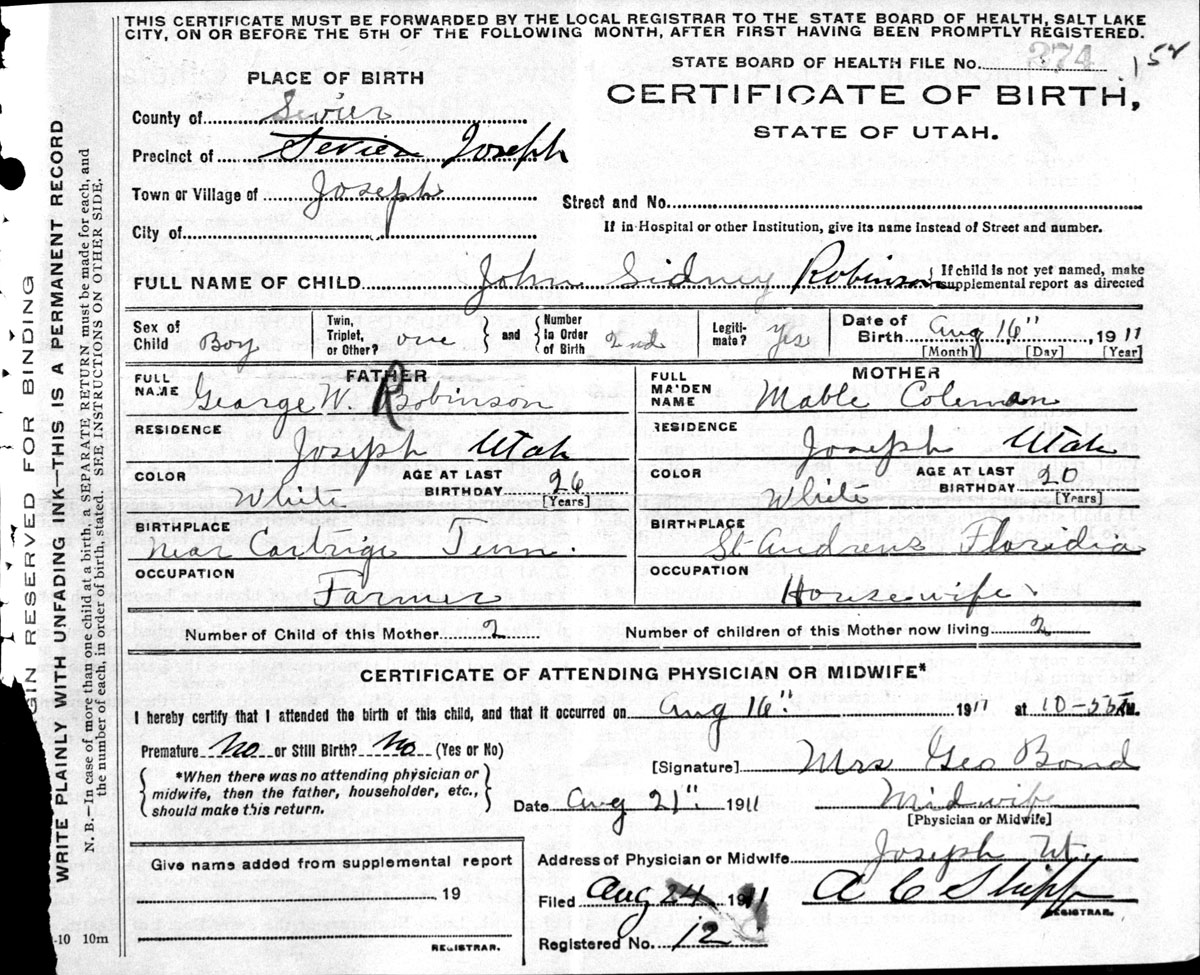 THIS CERTIFICATE MUST BE FORWARDED BY THE LOCAL REGISTRAR TO THE STATE BOARD OF HEALTH, SALT LAKE
CITY, ON OR BEFORE THE 5TH OF THE FOLLOWING MONTH, AFTER FIRST HAVING BEEN PROMPTLY REGISTERED.
STATE BOARD OF HEALTH FILE No. 274 152
PLACE OF BIRTH
CERTIFICATE OF BIRTH,
STATE OF UTAH.
County of Sevier
Precinct of Sevier Joseph
Town or Village of Joseph
Street and No.
City of
If in Hospital or other Institution, give its name Instead of Street and number.
FULL NAME OF CHILD John Sidney Robinson { If child is not yet named, make
supplemental report as directed
Sex of Child Boy
Twin, Triplet, or Other? one } and { Number In Order of Birth 2nd
Legiti- mate? Yes
Date of Birth Aug 16", 1911
[Month] [Day] [Year]
FATHER
FULL NAME George W. Robinson
RESIDENCE
Joseph Utah
COLOR White AGE AT LAST BIRTHDAY 26 [Years]
BIRTHPLACE
near Cartrige Tenn.
OCCUPATION
Farmer
MOTHER
FULL MAIDEN NAME Mable Coleman
RESIDENCE
Joseph Utah
COLOR White AGE AT LAST BIRTHDAY 20 [Years]
BIRTHPLACE
St Andrews Floredia
OCCUPATION
Housewife.
Number of Child of this Mother 2 Number of children of this Mother now living 2
CERTIFICATE OF ATTENDING PHYSICIAN OR MIDWIFE*
I hereby certify that I attended the birth of this child, and that it occurred on Aug 16" 1911 at 10-55 M.
Premature No or Still Birth? No (Yes or No)
{ *When there was no attending physician or
midwife, then the father, householder, etc.,
should make this return. }
[Signature] Mrs Geo Bond
Date Aug 21" 1911 Midwife
[Physician or Midwife]
Address of Physician or Midwife Joseph Ut.
Give name added from supplemental report
19
REGISTRAR.
Filed Aug 24 1911 A C Shipp
REGISTRAR.
Registered No. 12
-10 10m
GIN RESERVED FOR BINDING
WRITE PLAINLY WITH UNFADING INK—THIS IS A PERMANENT RECORD
N. B.—In case of more than one child at a birth, a SEPARATE RETURN must be made for each, and
the number of each, in order of birth, stated. SEE INSTRUCTIONS ON OTHER SIDE.